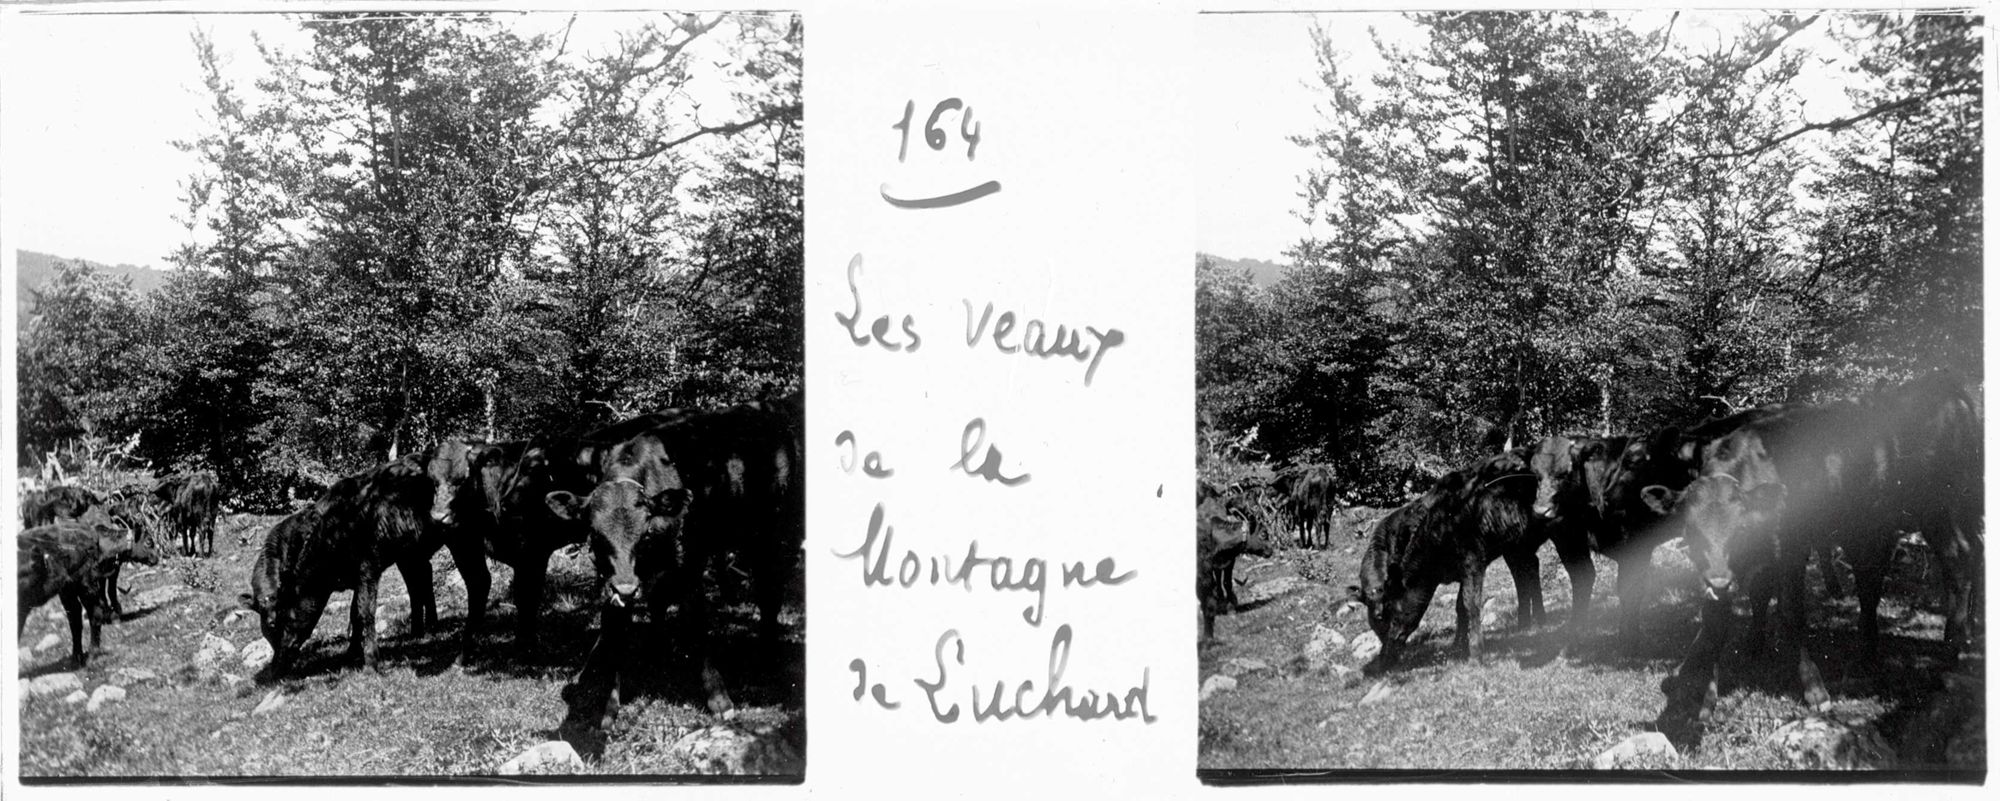 164
Les veaux
de la
Montagne
de Luchard